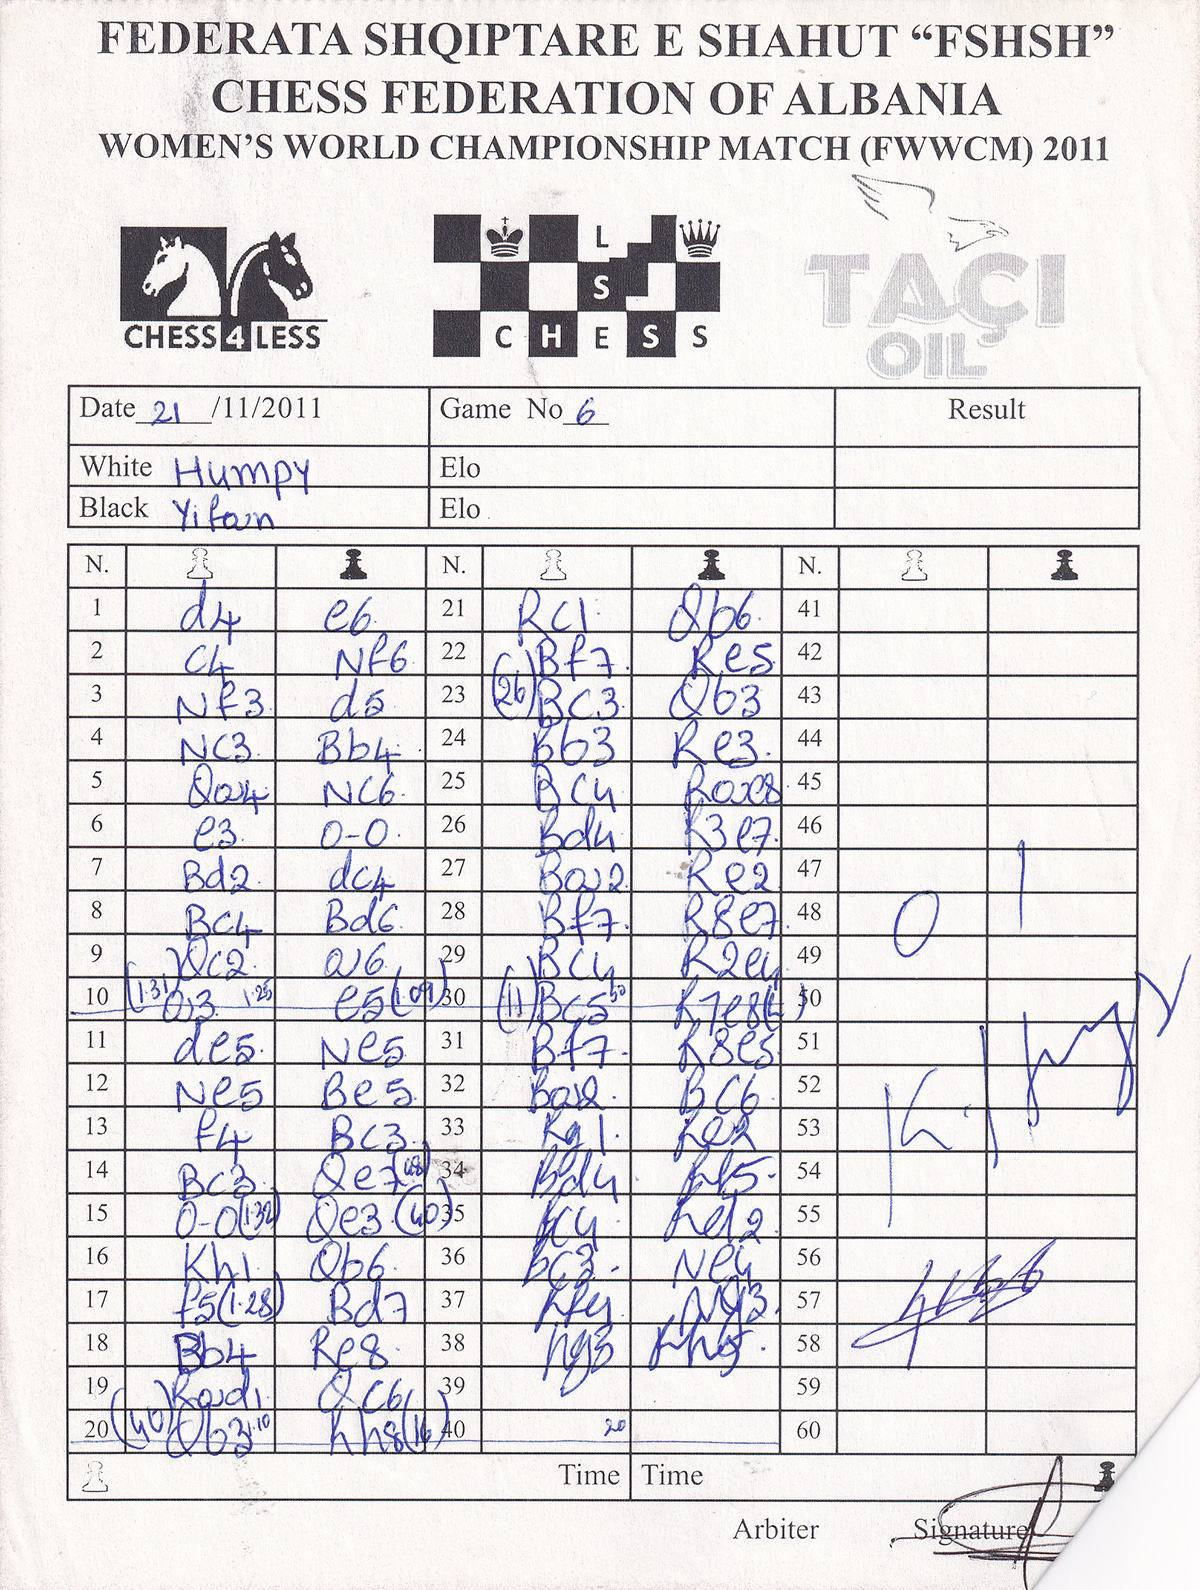 FEDERATA SHQIPTARE E SHAHUT “FSHSH”
CHESS FEDERATION OF ALBANIA
WOMEN’S WORLD CHAMPIONSHIP MATCH (FWWCM) 2011
CHESS4LESS
L
S
CHESS
TAÇI
OIL
Date 21 /11/2011 Game No 6 Result
White Humpy Elo
Black Yifan Elo
N. N. N.
1 d4 e6 21 Rc1 Qb6 41
2 c4 Nf6 22 Bf7 Re5 42
3 Nf3 d5 23 (26) Bc3 Qb3 43
4 Nc3 Bb4 24 Bb3 Re3 44
5 Qa4 Nc6 25 Bc4 Rae8 45
6 e3 0-0 26 Bd4 R3e7 46
7 Bd2 dc4 27 Ba2 Re2 47
8 Bc4 Bd6 28 Bf7 R8e7 48
9 Qc2 a6 29 Bc4 R2e4 49
10 (1.31) a3 1.25 e5 (1.09) 30 (11) Bc5 50 R7e8 50
11 de5 Ne5 31 Bf7 R8e5 51
12 Ne5 Be5 32 Ba2 Bc6 52
13 f4 Bc3 33 Kg1 Re2 53
14 Bc3 Qe7 (48) 34 Bd4 Kh5 54
15 0-0 (1.32) Qe3 (40) 35 Rd2 55
16 Kh1 Qb6 36 Bc3 Ne4 56
17 f5 (1.28) Bd7 37 Ng3 57
18 Bb4 Re8 38 hg3 58
19 Rad1 Qc6 39 59
20 (40) Qb3 1.10 Kh8 (16) 40 20 60
0 1
Time Time
Arbiter Signature